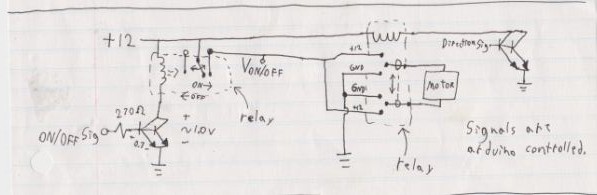 +12
ON→
←OFF
VON/OFF
relay
270Ω
ON/OFF Sig
0.7
+
~1.0V
-
+12
GND
GND
+12
MOTOR
relay
Direction Sig
Signals are
arduino controlled.